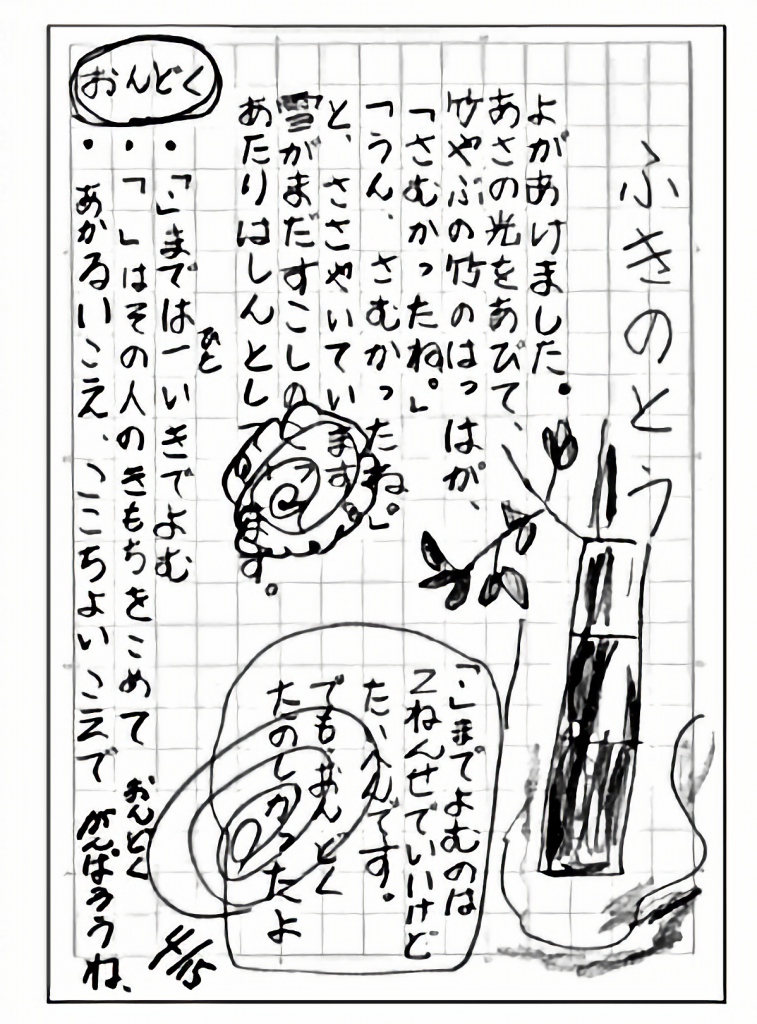 ふきのとう
よがあけました。
あさの光をあびて、
竹やぶの竹のはっはが、
「さむかったね。」
「うん、さむかったね。」
と、ささやいています。
雪がまだすこしの
あたりはしんとして
ます。
おんどく
・「。」までは一いきでよむ
ひと
・「」はその人のきもちをこめて おんどく
・あかるいこえ、ここちよいこえで がんばろうね、
「。」までよむのは
2ねんせでいいけど
たいへんです。
でも、おんどく
たのしかったよ
4/15